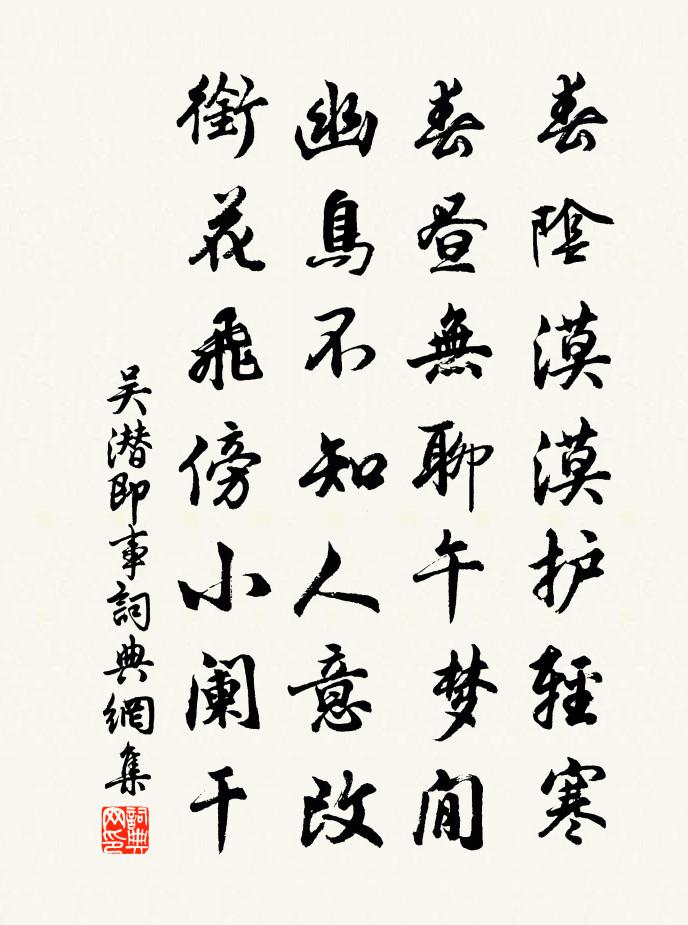 春陰漠漠护輕寒
春昼無聊午梦閒
幽鳥不知人意改
銜花飛傍小阑干
吴潜即事詞典網集
詞典网印